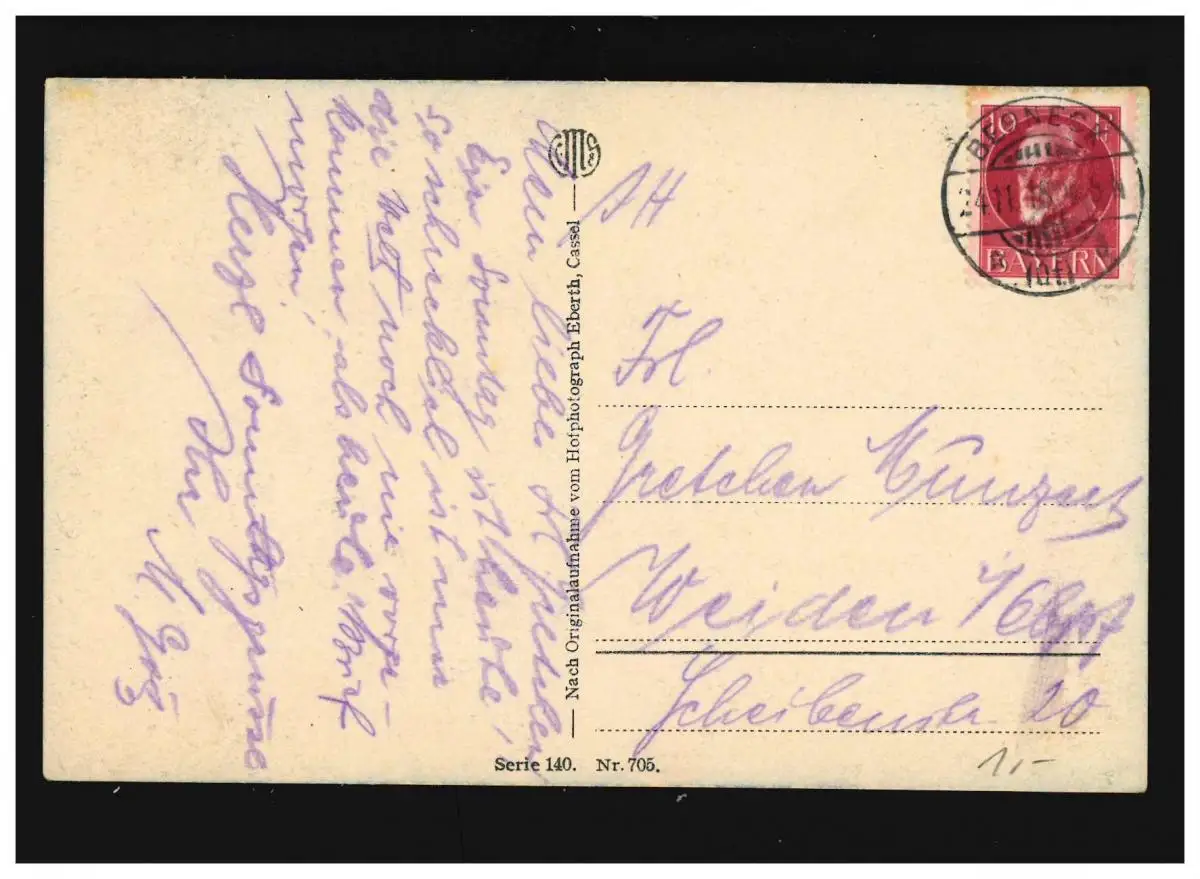 Mein liebes Frl. Gretchen
Ein Sonntag ist heute,
so schrecklich ist mir
die Welt noch nie vorge-
kommen, als heute. Brief
morgen!
Herzl. Sonntagsgrüsse
Ihr
M.
Nach Originalaufnahme vom Hofphotograph Eberth, Cassel
Serie 140. Nr. 705.
10 P
BAYERN
BERNECK
Frl.
Gretchen
Weiden
Scheibenstr 20
1,-